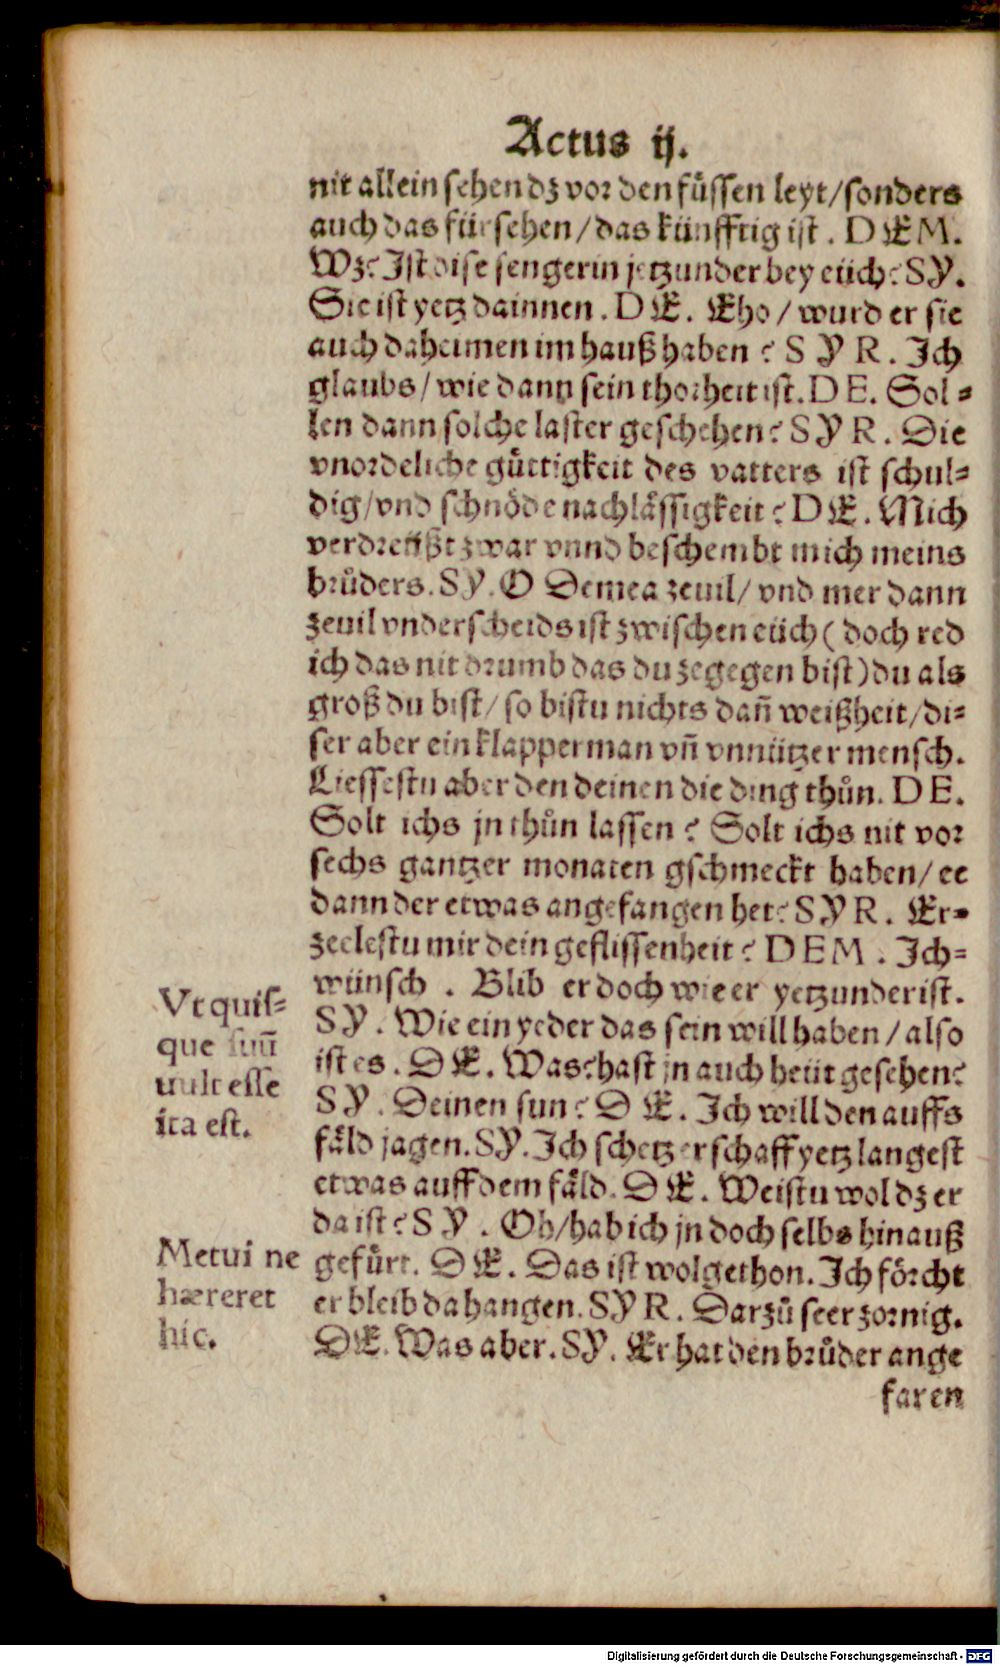 Actus ij.
nit allein sehen dz vor den füssen leyt/sonders
auch das fürsehen/das künfftig ist. DEM.
Wz? Ist dise sengerin jetzunder bey eüch? SY.
Sie ist yetz dainnen. DE. Eho/ wurd er sie
auch daheimen im hauß haben? SYR. Ich
glaubs/ wie dann sein thorheit ist. DE. Sol-
len dann solche laster geschehen? SYR. Die
vnordeliche gůttigkeit des vatters ist schul-
dig/vnd schnöde nachlässigkeit? DE. Mich
verdreüßt zwar vnnd beschembt mich meins
brůders. SY. O Demea zeuil/ vnd mer dann
zeuil vnderscheids ist zwischen eüch (doch red
ich das nit drumb das du zegegen bist) du als
groß du bist/ so bistu nichts dañ weißheit/di-
ser aber ein klapperman vñ vnnützer mensch.
Liessestu aber den deinen die ding thůn. DE.
Solt ichs jn thůn lassen? Solt ichs nit vor
sechs gantzer monaten gschmeckt haben/ ee
dann der etwas angefangen het? SYR. Er-
zeelestu mir dein geflissenheit? DEM. Ich-
wünsch. Blib er doch wie er yetzunder ist.
SY. Wie ein yeder das sein will haben/ also
ist es. DE. Was? hast jn auch heüt gesehen?
SY. Deinen sun? DE. Ich will den auffs
fäld jagen. SY. Ich schetz er schaff yetz langest
etwas auff dem fäld. DE. Weistu wol dz er
da ist? SY. Oh/hab ich jn doch selbs hinauß
gefürt. DE. Das ist wolgethon. Ich förcht
er bleib da hangen. SYR. Darzů seer zornig.
DE. Was aber. SY. Er hat den brůder ange
faren
Vt quis-
que suũ
uult esse
ita est.
Metui ne
hæreret
hic.
Digitalisierung gefördert durch die Deutsche Forschungsgemeinschaft - DFG